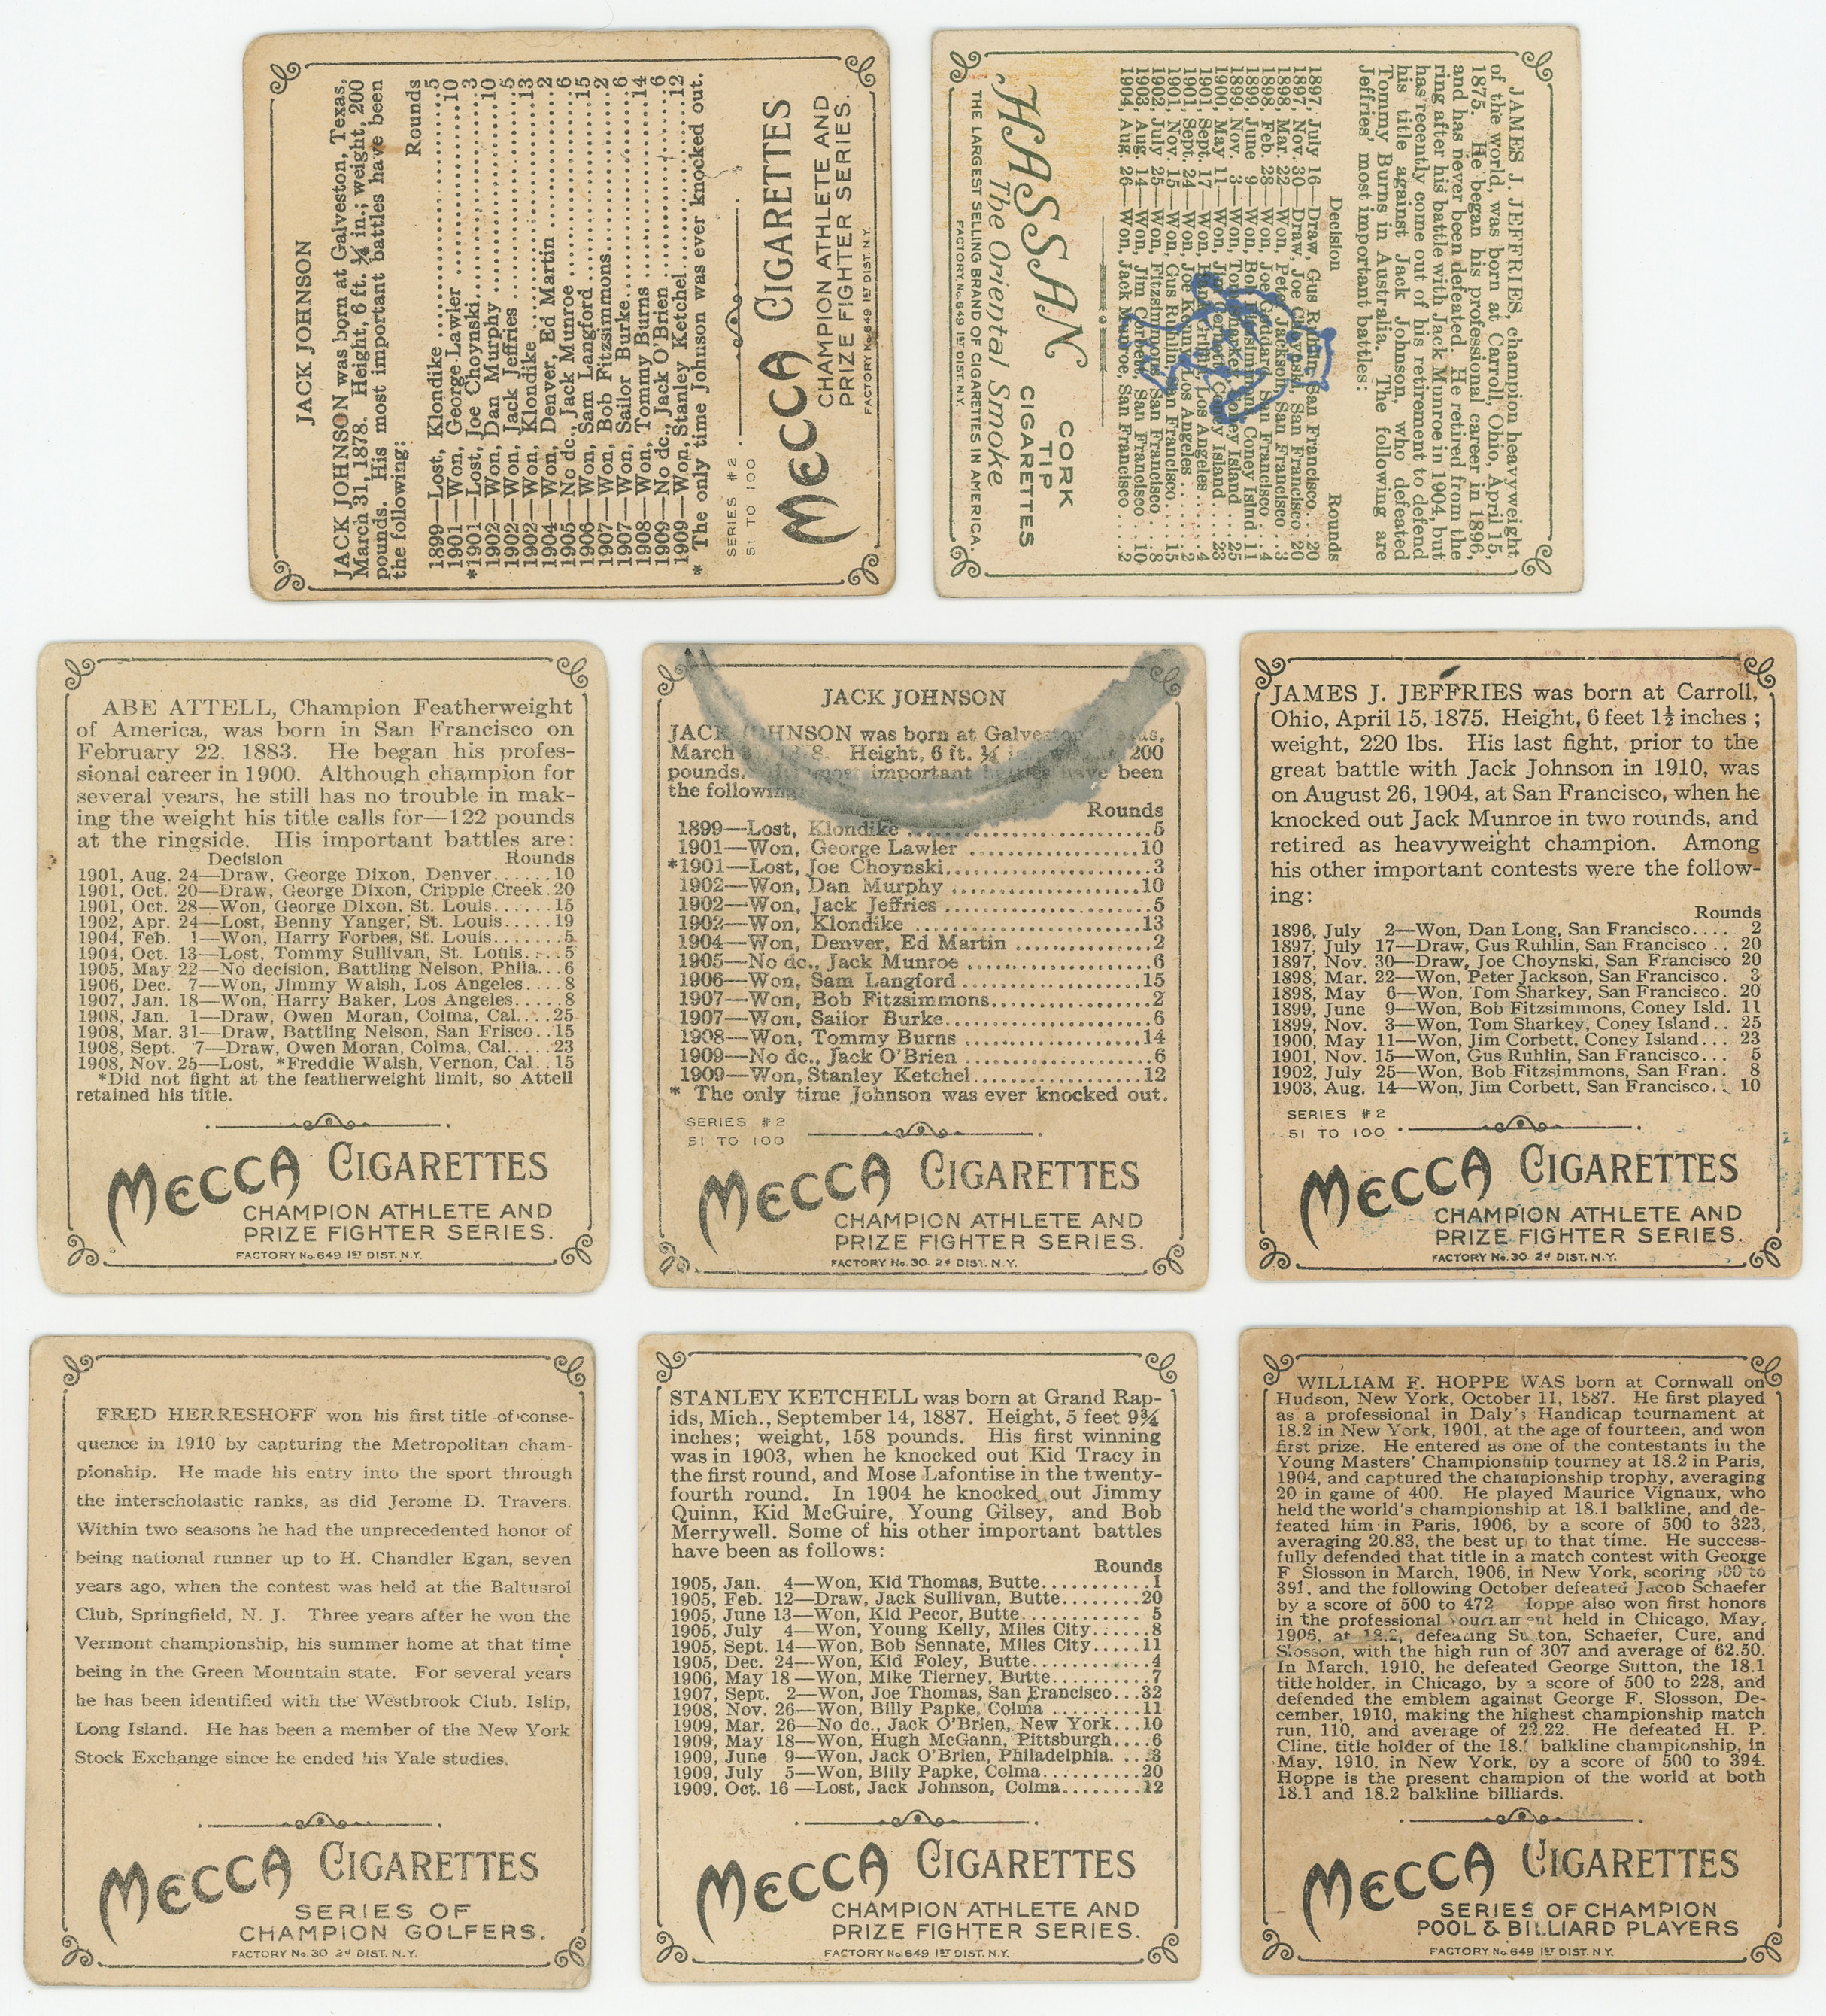 JACK JOHNSON
JACK JOHNSON was born at Galveston, Texas,
March 31, 1878. Height, 6 ft. ¼ in.; weight, 200
pounds. His most important battles have been
the following:
Rounds
1899—Lost, Klondike ........5
1901—Won, George Lawler ........10
*1901—Lost, Joe Choynski........3
1902—Won, Dan Murphy ........10
1902—Won, Jack Jeffries ........5
1902—Won, Klondike ........13
1904—Won, Denver, Ed Martin ........2
1905—No dc., Jack Munroe ........6
1906—Won, Sam Langford ........15
1907—Won, Bob Fitzsimmons........2
1907—Won, Sailor Burke........6
1908—Won, Tommy Burns ........14
1909—No dc., Jack O'Brien ........6
1909—Won, Stanley Ketchel........12
* The only time Johnson was ever knocked out.
SERIES #2
51 TO 100
MECCA CIGARETTES
CHAMPION ATHLETE AND
PRIZE FIGHTER SERIES.
FACTORY No. 649 1ST DIST. N.Y.
JAMES J. JEFFRIES, champion heavyweight
of the world, was born at Carroll, Ohio, April 15,
1875. He began his professional career in 1896,
and has never been defeated. He retired from the
ring after his battle with Jack Munroe in 1904, but
has recently come out of his retirement to defend
his title against Jack Johnson, who defeated
Tommy Burns in Australia. The following are
Jeffries' most important battles:
Decision Rounds
1897, July 16—Draw, Gus Ruhlin, San Francisco...20
1897, Nov. 30—Draw, Joe Choynski, San Francisco 20
1898, Mar. 22—Won, Peter Jackson, San Francisco . 3
1898, Feb. 28—Won, Joe Goddard, San Francisco .. 4
1899, June 9—Won, Bob Fitzsimmons, Coney Islnd. 11
1899, Nov. 3—Won, Tom Sharkey, Coney Island .... 25
1900, May 11—Won, Jim Corbett, Coney Island .... 23
1901, Sept. 17—Won, Griffin, Los Angeles.... 4
1901, Sept. 24—Won, Joe Kennedy, Los Angeles .... 2
1901, Nov. 15—Won, Gus Ruhlin, San Francisco.... 15
1902, July 25—Won, Fitzsimmons, San Francisco .. 8
1903, Aug. 14—Won, Jim Corbett, San Francisco ... 10
1904, Aug. 26—Won, Jack Munroe, San Francisco ... 2
HASSAN CORK
TIP
The Oriental Smoke CIGARETTES
THE LARGEST SELLING BRAND OF CIGARETTES IN AMERICA.
FACTORY No. 649 1ST DIST. N.Y.
ABE ATTELL, Champion Featherweight
of America, was born in San Francisco on
February 22, 1883. He began his profes-
sional career in 1900. Although champion for
several years, he still has no trouble in mak-
ing the weight his title calls for—122 pounds
at the ringside. His important battles are:
Decision Rounds
1901, Aug. 24—Draw, George Dixon, Denver......10
1901, Oct. 20—Draw, George Dixon, Cripple Creek.20
1901, Oct. 28—Won, George Dixon, St. Louis......15
1902, Apr. 24—Lost, Benny Yanger, St. Louis.....19
1904, Feb. 1—Won, Harry Forbes, St. Louis........5
1904, Oct. 13—Lost, Tommy Sullivan, St. Louis....5
1905, May 22—No decision, Battling Nelson, Phila...6
1906, Dec. 7—Won, Jimmy Walsh, Los Angeles....8
1907, Jan. 18—Won, Harry Baker, Los Angeles.....8
1908, Jan. 1—Draw, Owen Moran, Colma, Cal....25
1908, Mar. 31—Draw, Battling Nelson, San Frisco..15
1908, Sept. 7—Draw, Owen Moran, Colma, Cal.....23
1908, Nov. 25—Lost, *Freddie Walsh, Vernon, Cal..15
*Did not fight at the featherweight limit, so Attell
retained his title.
MECCA CIGARETTES
CHAMPION ATHLETE AND
PRIZE FIGHTER SERIES.
FACTORY No. 649 1ST DIST. N.Y.
JACK JOHNSON
JACK JOHNSON was born at Galveston, Texas,
March 31, 1878. Height, 6 ft. ¼ in.; weight, 200
pounds. His most important battles have been
the following:
Rounds
1899—Lost, Klondike ........5
1901—Won, George Lawler ........10
*1901—Lost, Joe Choynski........3
1902—Won, Dan Murphy ........10
1902—Won, Jack Jeffries ........5
1902—Won, Klondike ........13
1904—Won, Denver, Ed Martin ........2
1905—No dc., Jack Munroe ........6
1906—Won, Sam Langford ........15
1907—Won, Bob Fitzsimmons........2
1907—Won, Sailor Burke........6
1908—Won, Tommy Burns ........14
1909—No dc., Jack O'Brien ........6
1909—Won, Stanley Ketchel........12
* The only time Johnson was ever knocked out.
SERIES #2
51 TO 100
MECCA CIGARETTES
CHAMPION ATHLETE AND
PRIZE FIGHTER SERIES.
FACTORY No. 30 2d DIST. N.Y.
JAMES J. JEFFRIES was born at Carroll,
Ohio, April 15, 1875. Height, 6 feet 1½ inches;
weight, 220 lbs. His last fight, prior to the
great battle with Jack Johnson in 1910, was
on August 26, 1904, at San Francisco, when he
knocked out Jack Munroe in two rounds, and
retired as heavyweight champion. Among
his other important contests were the follow-
ing:
Rounds
1896, July 2—Won, Dan Long, San Francisco.... 2
1897, July 17—Draw, Gus Ruhlin, San Francisco .. 20
1897, Nov. 30—Draw, Joe Choynski, San Francisco 20
1898, Mar. 22—Won, Peter Jackson, San Francisco. 3
1898, May 6—Won, Tom Sharkey, San Francisco. 20
1899, June 9—Won, Bob Fitzsimmons, Coney Isld. 11
1899, Nov. 3—Won, Tom Sharkey, Coney Island.. 25
1900, May 11—Won, Jim Corbett, Coney Island... 23
1901, Nov. 15—Won, Gus Ruhlin, San Francisco... 5
1902, July 25—Won, Bob Fitzsimmons, San Fran. 8
1903, Aug. 14—Won, Jim Corbett, San Francisco.. 10
SERIES #2
51 TO 100
MECCA CIGARETTES
CHAMPION ATHLETE AND
PRIZE FIGHTER SERIES.
FACTORY No. 30 2d DIST. N.Y.
FRED HERRESHOFF won his first title of conse-
quence in 1910 by capturing the Metropolitan cham-
pionship. He made his entry into the sport through
the interscholastic ranks, as did Jerome D. Travers.
Within two seasons he had the unprecedented honor of
being national runner up to H. Chandler Egan, seven
years ago, when the contest was held at the Baltusrol
Club, Springfield, N. J. Three years after he won the
Vermont championship, his summer home at that time
being in the Green Mountain state. For several years
he has been identified with the Westbrook Club, Islip,
Long Island. He has been a member of the New York
Stock Exchange since he ended his Yale studies.
MECCA CIGARETTES
SERIES OF
CHAMPION GOLFERS.
FACTORY No. 30 2d DIST. N.Y.
STANLEY KETCHELL was born at Grand Rap-
ids, Mich., September 14, 1887. Height, 5 feet 9¾
inches; weight, 158 pounds. His first winning
was in 1903, when he knocked out Kid Tracy in
the first round, and Mose Lafontise in the twenty-
fourth round. In 1904 he knocked out Jimmy
Quinn, Kid McGuire, Young Gilsey, and Bob
Merrywell. Some of his other important battles
have been as follows:
Rounds
1905, Jan. 4—Won, Kid Thomas, Butte...........1
1905, Feb. 12—Draw, Jack Sullivan, Butte........20
1905, June 13—Won, Kid Pecor, Butte............ 5
1905, July 4—Won, Young Kelly, Miles City......8
1905, Sept. 14—Won, Bob Sennate, Miles City.....11
1905, Dec. 24—Won, Kid Foley, Butte...........4
1906, May 18—Won, Mike Tierney, Butte..........7
1907, Sept. 2—Won, Joe Thomas, San Francisco...32
1908, Nov. 26—Won, Billy Papke, Colma .........11
1909, Mar. 26—No dc., Jack O'Brien, New York...10
1909, May 18—Won, Hugh McGann, Pittsburgh....6
1909, June 9—Won, Jack O'Brien, Philadelphia. ...3
1909, July 5—Won, Billy Papke, Colma..........20
1909, Oct. 16—Lost, Jack Johnson, Colma........12
MECCA CIGARETTES
CHAMPION ATHLETE AND
PRIZE FIGHTER SERIES.
FACTORY No. 649 1ST DIST. N.Y.
WILLIAM F. HOPPE WAS born at Cornwall on
Hudson, New York, October 11, 1887. He first played
as a professional in Daly's Handicap tournament at
18.2 in New York, 1901, at the age of fourteen, and won
first prize. He entered as one of the contestants in the
Young Masters' Championship tourney at 18.2 in Paris,
1904, and captured the championship trophy, averaging
20 in game of 400. He played Maurice Vignaux, who
held the world's championship at 18.1 balkline, and de-
feated him in Paris, 1906, by a score of 500 to 323,
averaging 20.83, the best up to that time. He success-
fully defended that title in a match contest with George
F. Slosson in March, 1906, in New York, scoring 500 to
391, and the following October defeated Jacob Schaefer
by a score of 500 to 472 Hoppe also won first honors
in the professional tournament held in Chicago, May,
1906, at 18.2, defeating Sutton, Schaefer, Cure, and
Slosson, with the high run of 307 and average of 62.50.
In March, 1910, he defeated George Sutton, the 18.1
title holder, in Chicago, by a score of 500 to 228, and
defended the emblem against George F. Slosson, De-
cember, 1910, making the highest championship match
run, 110, and average of 22.22. He defeated H. P.
Cline, title holder of the 18. balkline championship, in
May, 1910, in New York, by a score of 500 to 394.
Hoppe is the present champion of the world at both
18.1 and 18.2 balkline billiards.
MECCA CIGARETTES
SERIES OF CHAMPION
POOL & BILLIARD PLAYERS
FACTORY No. 649 1ST DIST. N.Y.